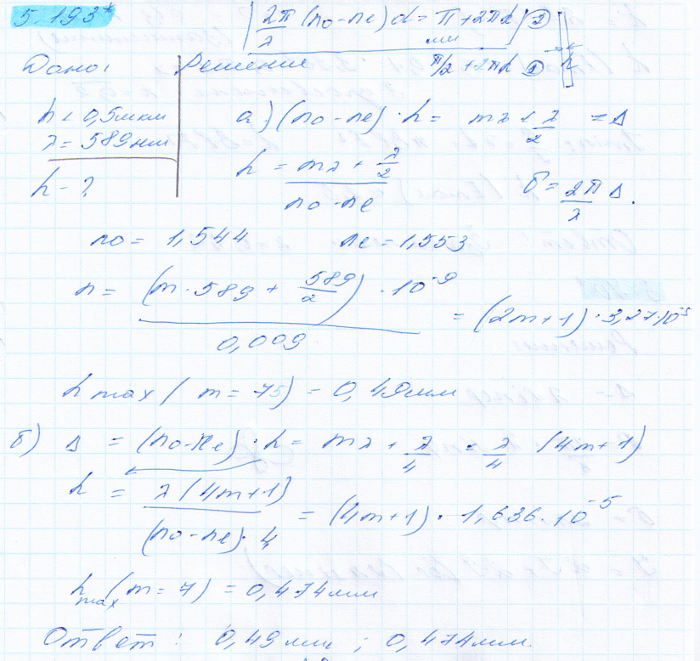 5.193*
2π/λ (no-ne)d = π + 2πk ②
π/2 + 2πk ①
Дано:
Решение
h < 0,5мкм
λ = 589нм
h - ?
а) (no-ne)·h = mλ + λ/2 = Δ
h = (mλ + λ/2)/(no-ne)
δ = 2π/λ Δ.
no = 1,544 ne = 1,553
h = (m·589 + 589/2)·10^-9 / 0,009 = (2m+1)·3,27·10^-5
h max (m = 75) = 0,49мм
б) Δ = (no-ne)·h = mλ + λ/4 = λ/4 (4m+1)
h = λ(4m+1)/((no-ne)·4) = (4m+1)·1,636·10^-5
h max (m = 7) = 0,474мм
Ответ: 0,49мм; 0,474мм.